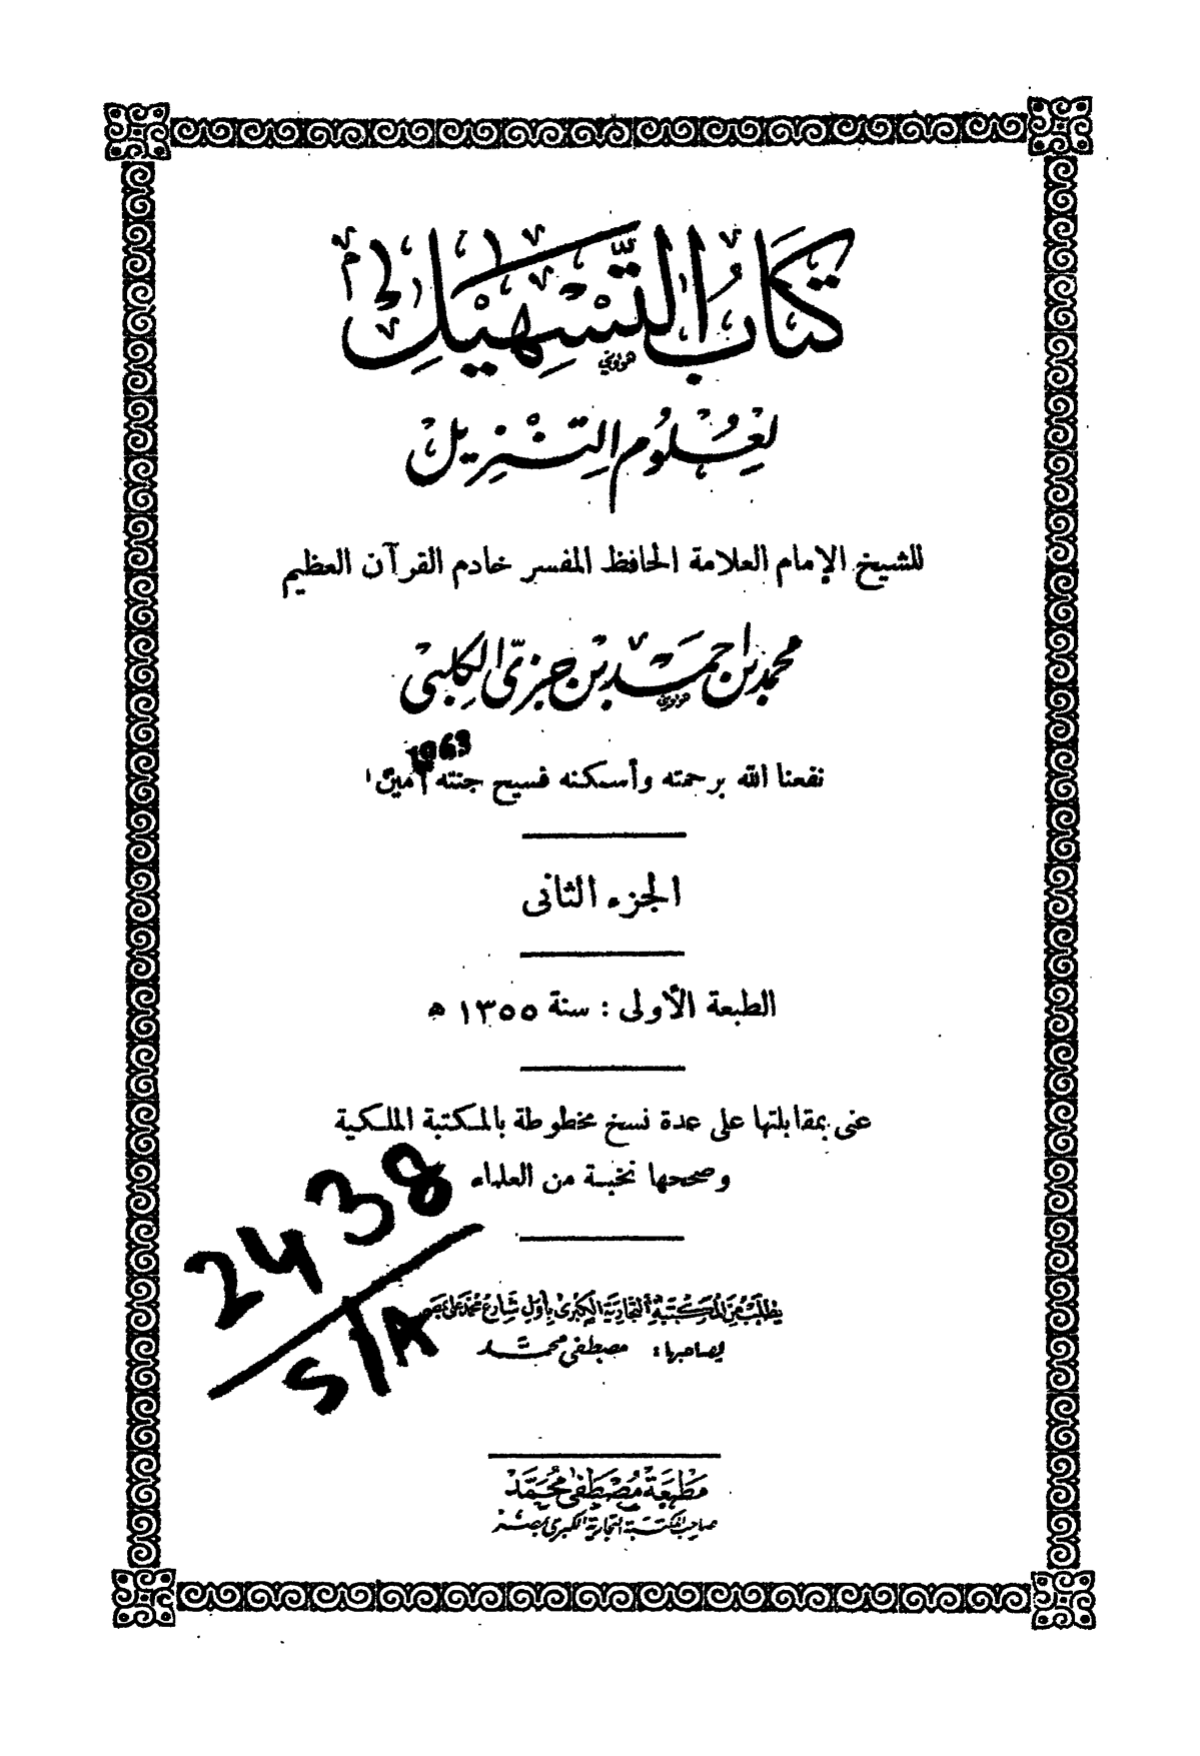 كتاب التسهيل
لعلوم التنزيل
للشيخ الإمام العلامة الحافظ المفسر خادم القرآن العظيم
محمد بن احمد بن جزىّ الكلبى
1963
نفعنا الله برحمته وأسكنه فسيح جنته آمين
الجزء الثانى
الطبعة الأولى : سنة ١٣٥٥ ھ
عنى بمقابلتها على عدة نسخ مخطوطة بالمكتبة الملكية
وصححها نخبة من العلماء
2438
S/A
يطلب من المكتبة التجارية الكبرى بأول شارع محمد على بمصر
لصاحبها : مصطفى محمد
مطبعة مصطفى محمد
صاحب المكتبة التجارية الكبرى بمصر